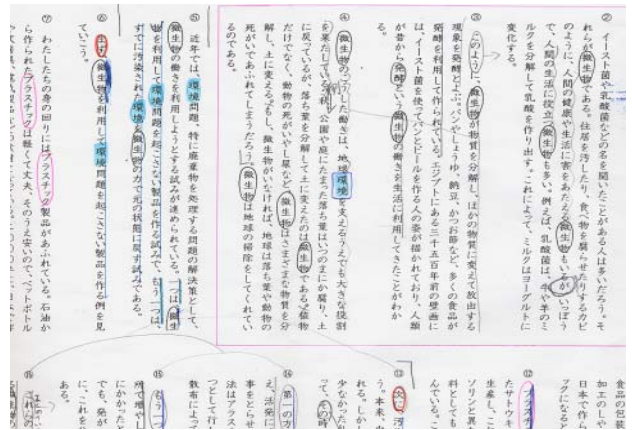 ②　イースト菌や乳酸菌などの名を聞いたことがある人は多いだろう。そ
れらが微生物である。住居を汚したり、食べ物を腐らせたりするカビ
のように、人間の健康や生活に害をあたえる微生物もいるが、いっぽう
で、人間の生活に役立つ微生物も多い。例えば、乳酸菌は、牛や羊のミ
ルクを分解して乳酸を作り出す。これによって、ミルクはヨーグルトに
変化する。
③　このように、微生物が物質を分解し、ほかの物質に変えて放出する
現象を発酵とよぶ。パンやしょうゆ、納豆、かつお節など、多くの食品が
発酵を利用して作られている。エジプトにある三千五百年前の壁画に
は、イースト菌を使ってパンとビールを作る人の姿が描かれており、人類
が昔から発酵という微生物の働きを生活に利用してきたことがわか
る。
④　微生物のこうした働きは、地球環境を支えるうえでも大きな役割
を果たしている。秋、公園や庭にたまった落ち葉はいつのまにか腐り、土
に戻っているが、落ち葉を分解して土に変えたのは微生物である。植物
だけでなく、動物の死がいや生ごみなど、微生物はさまざまな物質を分
解し、土に変える。もし、微生物がいなければ、地球は落ち葉や動物の
死がいであふれてしまうだろう。微生物は地球の掃除をしてくれてい
るのである。
⑤　近年では、環境問題、特に廃棄物を処理する問題の解決策として、
微生物の働きを利用しようとする試みが進められている。一つは、微生
物を利用して環境問題を起こさない製品を作る試みで、もう一つは、
すでに汚染された環境を微生物の力で元の状態に戻す試みである。
⑥　まず、微生物を利用して環境問題を起こさない製品を作る例を見
ていこう。
⑦　わたしたちの身の回りにはプラスチック製品があふれている。石油か
ら作られたプラスチックは軽くて丈夫、そのうえ安いので、ペットボトル
食品の包装
加工のしや
日本で作ら
ックになると
⑫　プラスチ
たサトウキ
生産し、こ
ソリンと異
料としても
んでいる。こ
⑬　次に、汚
う。本来、
れる。しか
少なかった
って、その時
⑭　第一の方
事をとらせ
え、活発に
散布によっ
つとして行
法はアラス
⑮　もう一つ
所で増やし
にかかったと
でも、発が
に、これを
ある。
⑯　これらの